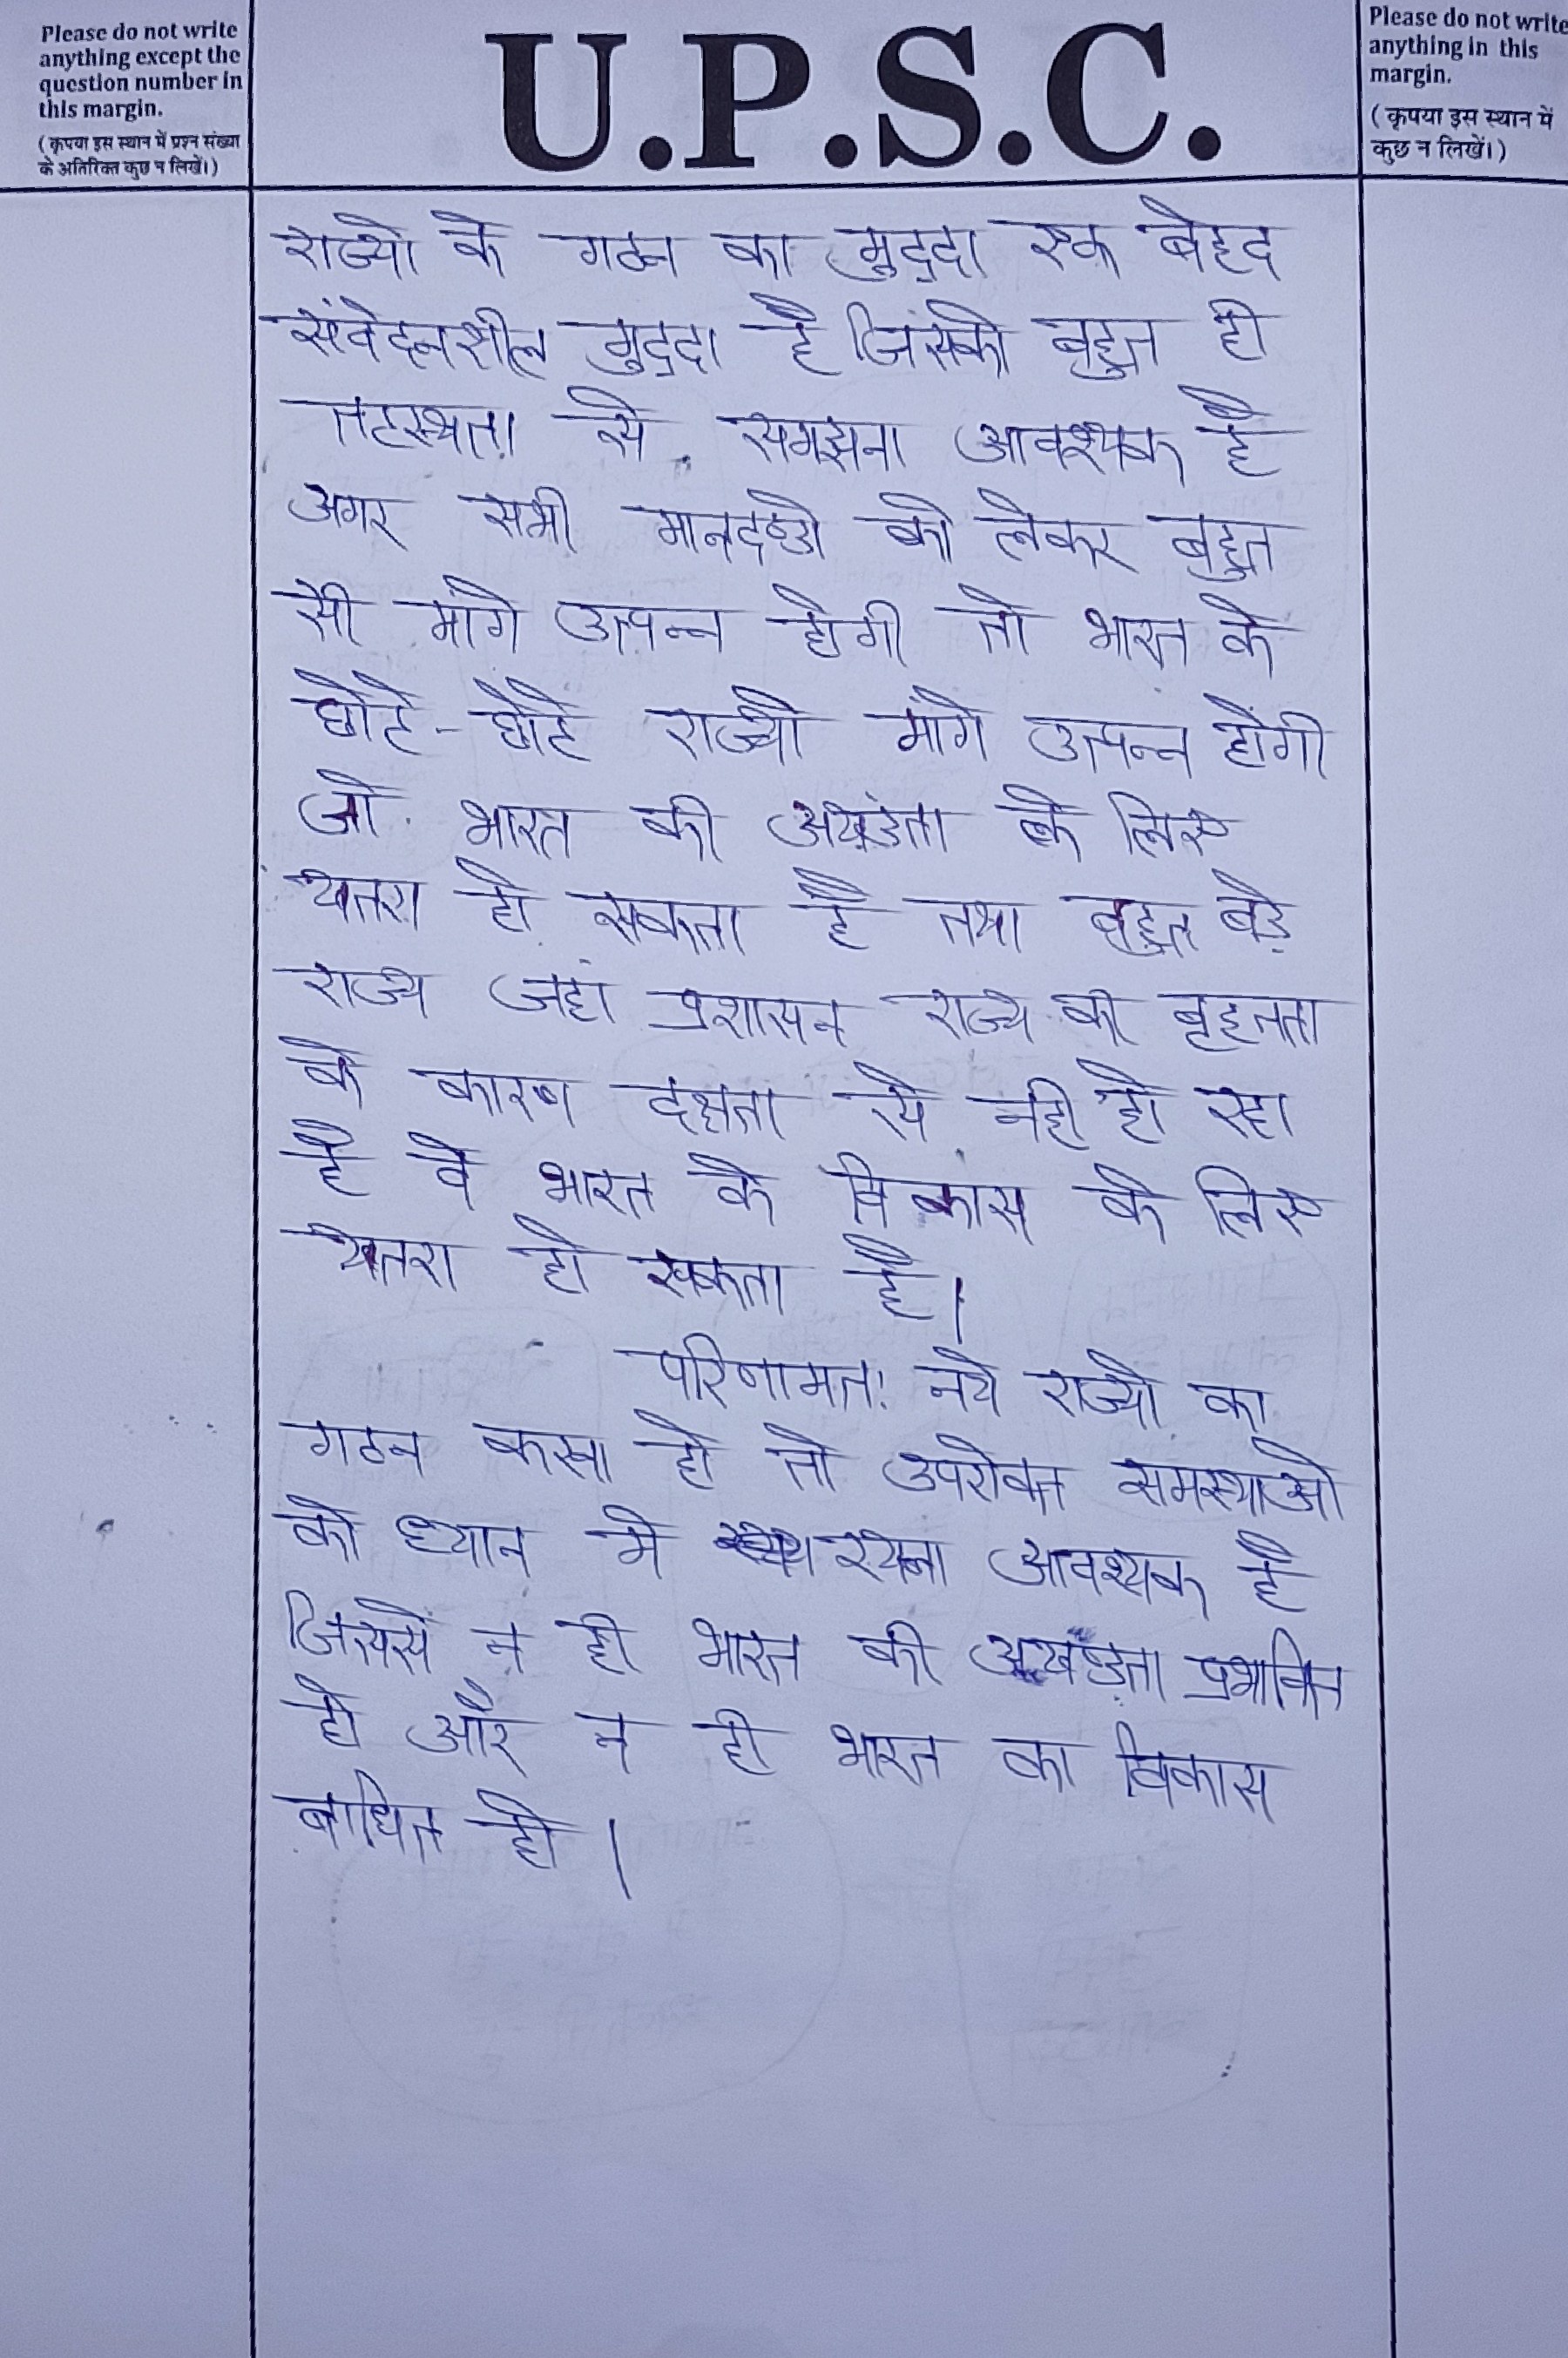 Please do not write
anything except the
question number in
this margin.
(कृपया इस स्थान में प्रश्न संख्या
के अतिरिक्त कुछ न लिखें।)
U.P.S.C.
Please do not write
anything in this
margin.
(कृपया इस स्थान में
कुछ न लिखें।)
राज्यो के गठन का मुद्दा एक बेहद
संवेदनशील मुद्दा है जिसको बहुत ही
तटस्थता से समझना आवश्यक है
अगर सभी मानदण्डो को लेकर बहुत
सी मांगे उत्पन्न होगी तो भारत के
छोटे-छोटे राज्यो मांगे उत्पन्न होंगी
जो भारत की अखंडता के लिए
खतरा हो सकता है तथा बहुत बड़े
राज्य जहां प्रशासन राज्य की बृहतता
के कारण दक्षता से नही हो रहा
है वे भारत के विकास के लिए
खतरा हो सकता है।
परिणामतः नये राज्यो का
गठन करना हो तो उपरोक्त समस्याओ
को ध्यान मे रखना आवश्यक है
जिससे न ही भारत की अखंडता प्रभावित
हो और न ही भारत का विकास
बाधित हो।